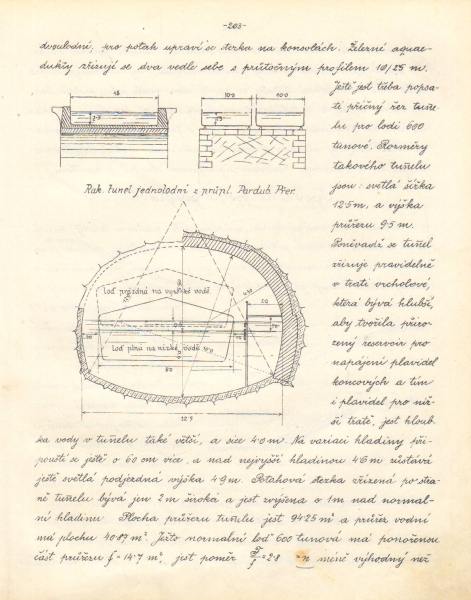 -203-
dvoulodní, pro potah upraví se stezka na konsolách. Železné aquae-
dukty zřizují se dva vedle sebe s průtočným profilem 10/2.5 m.
18
2.5
10.0
10.0
Ještě jest třeba popsa-
ti příčný řez tune-
lu pro lodi 600
tunové. Rozměry
takového tunelu
jsou: světlá šířka
12.5 m, a výška
průřezu 9.5 m.
Poněvadž se tunel
zřizuje pravidelně
v trati vrcholové,
která bývá hlubší,
aby tvořila přiro-
zený reservoir pro
napájení plavidel
koncových a tím
i plavidel pro niž-
ší tratě, jest hloub-
Rak. tunel jednolodní z průpl. Pardub. Přer.
loď prázdná na vysoké vodě
loď plná na nízké vodě
2.0
8.0
12.5
ka vody v tunelu také větší, a sice 4.0 m. Na variaci hladiny při-
pouští se ještě o 60 cm více, a nad nejvyšší hladinou 4.6 m zůstává
ještě světlá podjezdná výška 4.9 m. Potahová stezka zřízená po stra-
ně tunelu bývá jen 2 m široká a jest zvýšena o 1 m nad normal-
ní hladinu. Plocha průřezu tunelu jest 94.25 m² a průřez vodní
má plochu 40.87 m². Ježto normalní loď 600 tunová má ponořenou
část průřezu f = 14.7 m², jest poměr F/f = 2.8 = n méně výhodný než